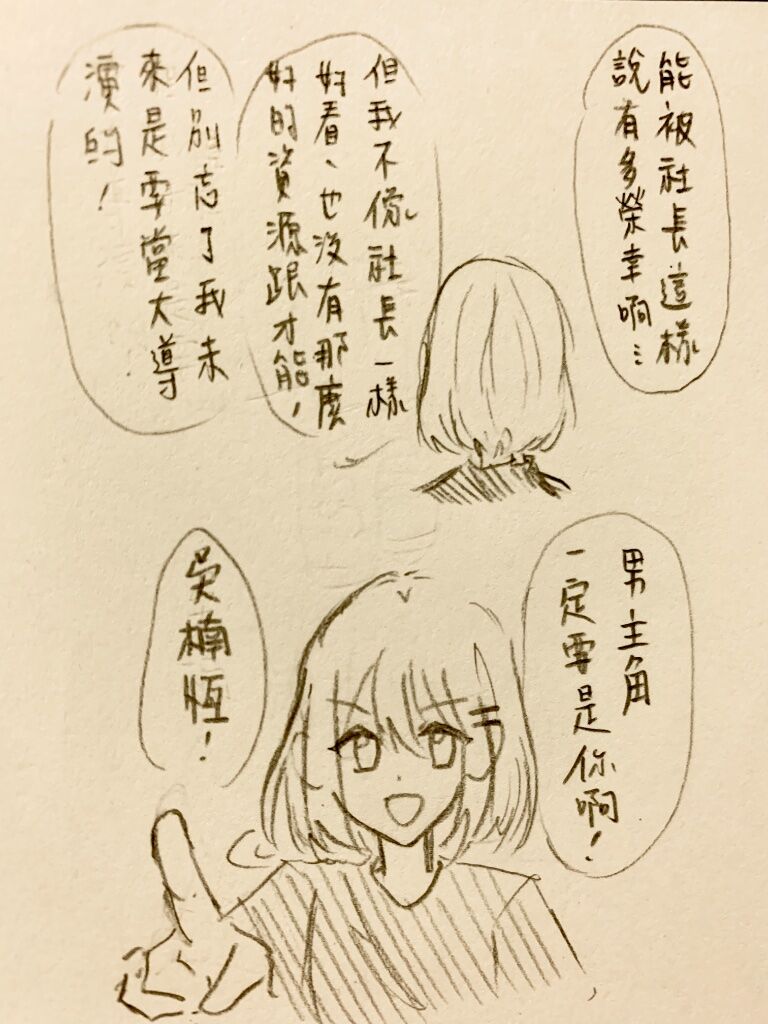 能被社長這樣
說有多榮幸啊…
但我不像社長一樣
好看、也沒有那麼
好的資源跟才能，
但別忘了我未
來是要當大導
演的！
男主角
一定要是你啊！
吳楠恆！